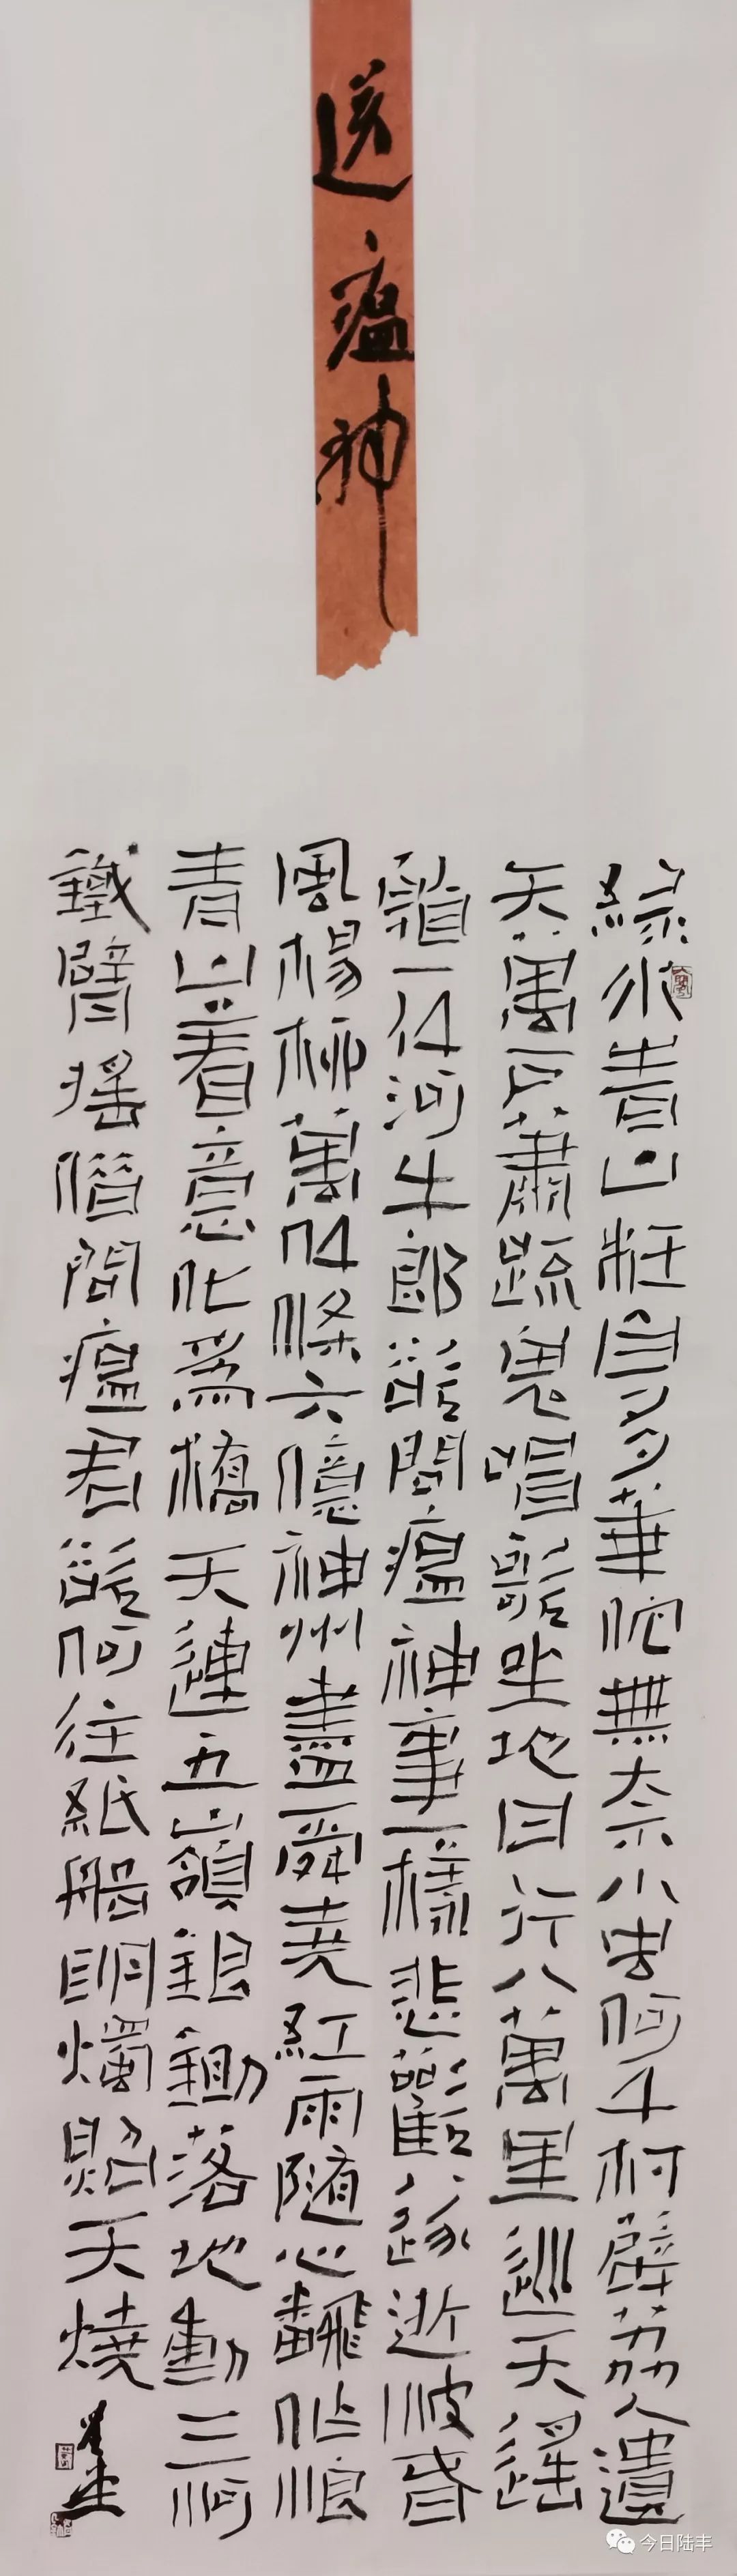 送瘟神
綠水青山枉自多華佗無奈小虫何千村薜荔人遺
矢萬戶蕭疏鬼唱歌坐地日行八萬里巡天遙
一千河牛郎欲問瘟神事一樣悲歡逐逝波春
風楊柳萬千條六億神州盡舜堯紅雨隨心飜作浪
青山着意化為橋天連五嶺銀鋤落地動三河
鐵臂搖借問瘟君欲何往紙船明燭照天燒
今日陆丰